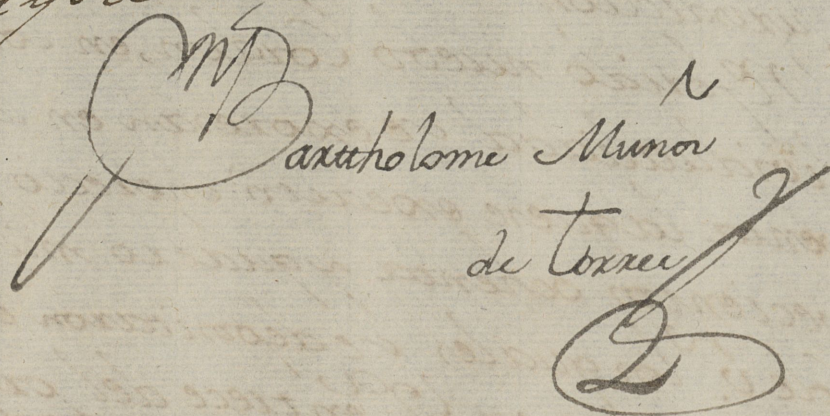 Barttholome Muñoz
de Torres